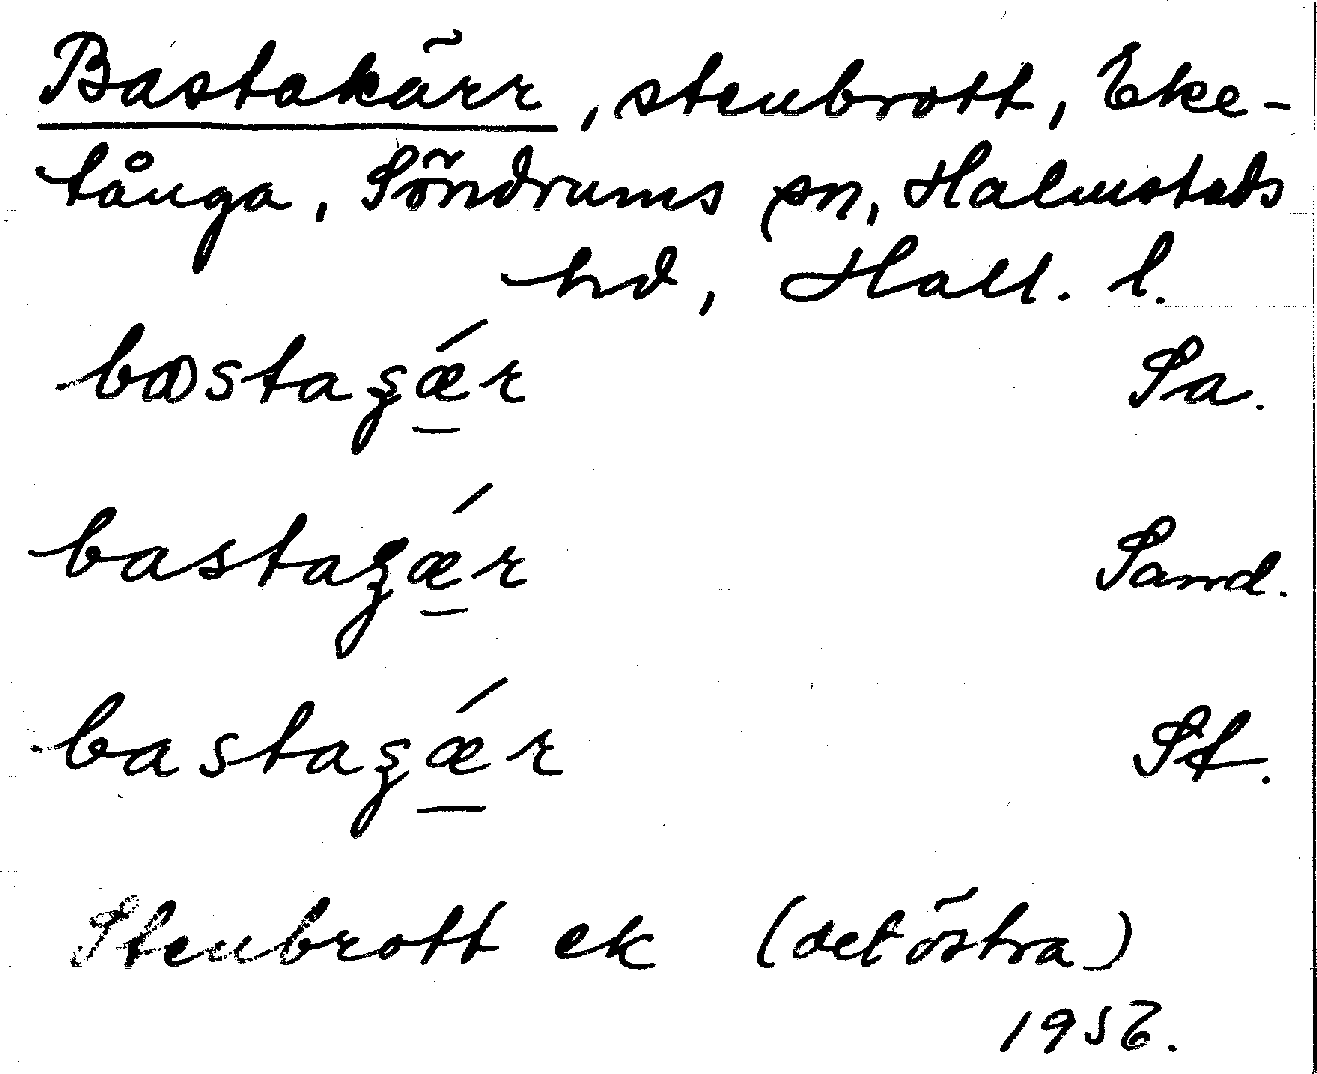 Bastakärr, stenbrott, Eke-
tånga, Söndrums sn, Halmstads
hd, Hall. l.
bastaʒǽr Sa.
bastaʒǽr Sand.
bastaʒǽr St.
Stenbrott ek (det östra)
1956.